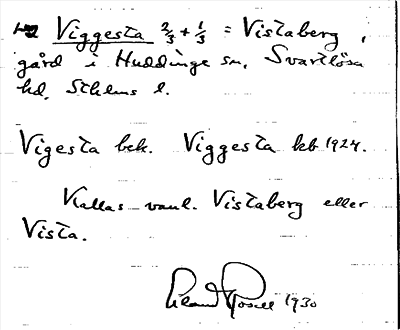 Viggesta 2/3 + 1/3 = Vistaberg,
gård i Huddinge sn, Svartlösa
hd, Sthlms l.
Vigesta bek. Viggesta kb 1924.
Kallas vanl. Vistaberg eller
Vista.
1930